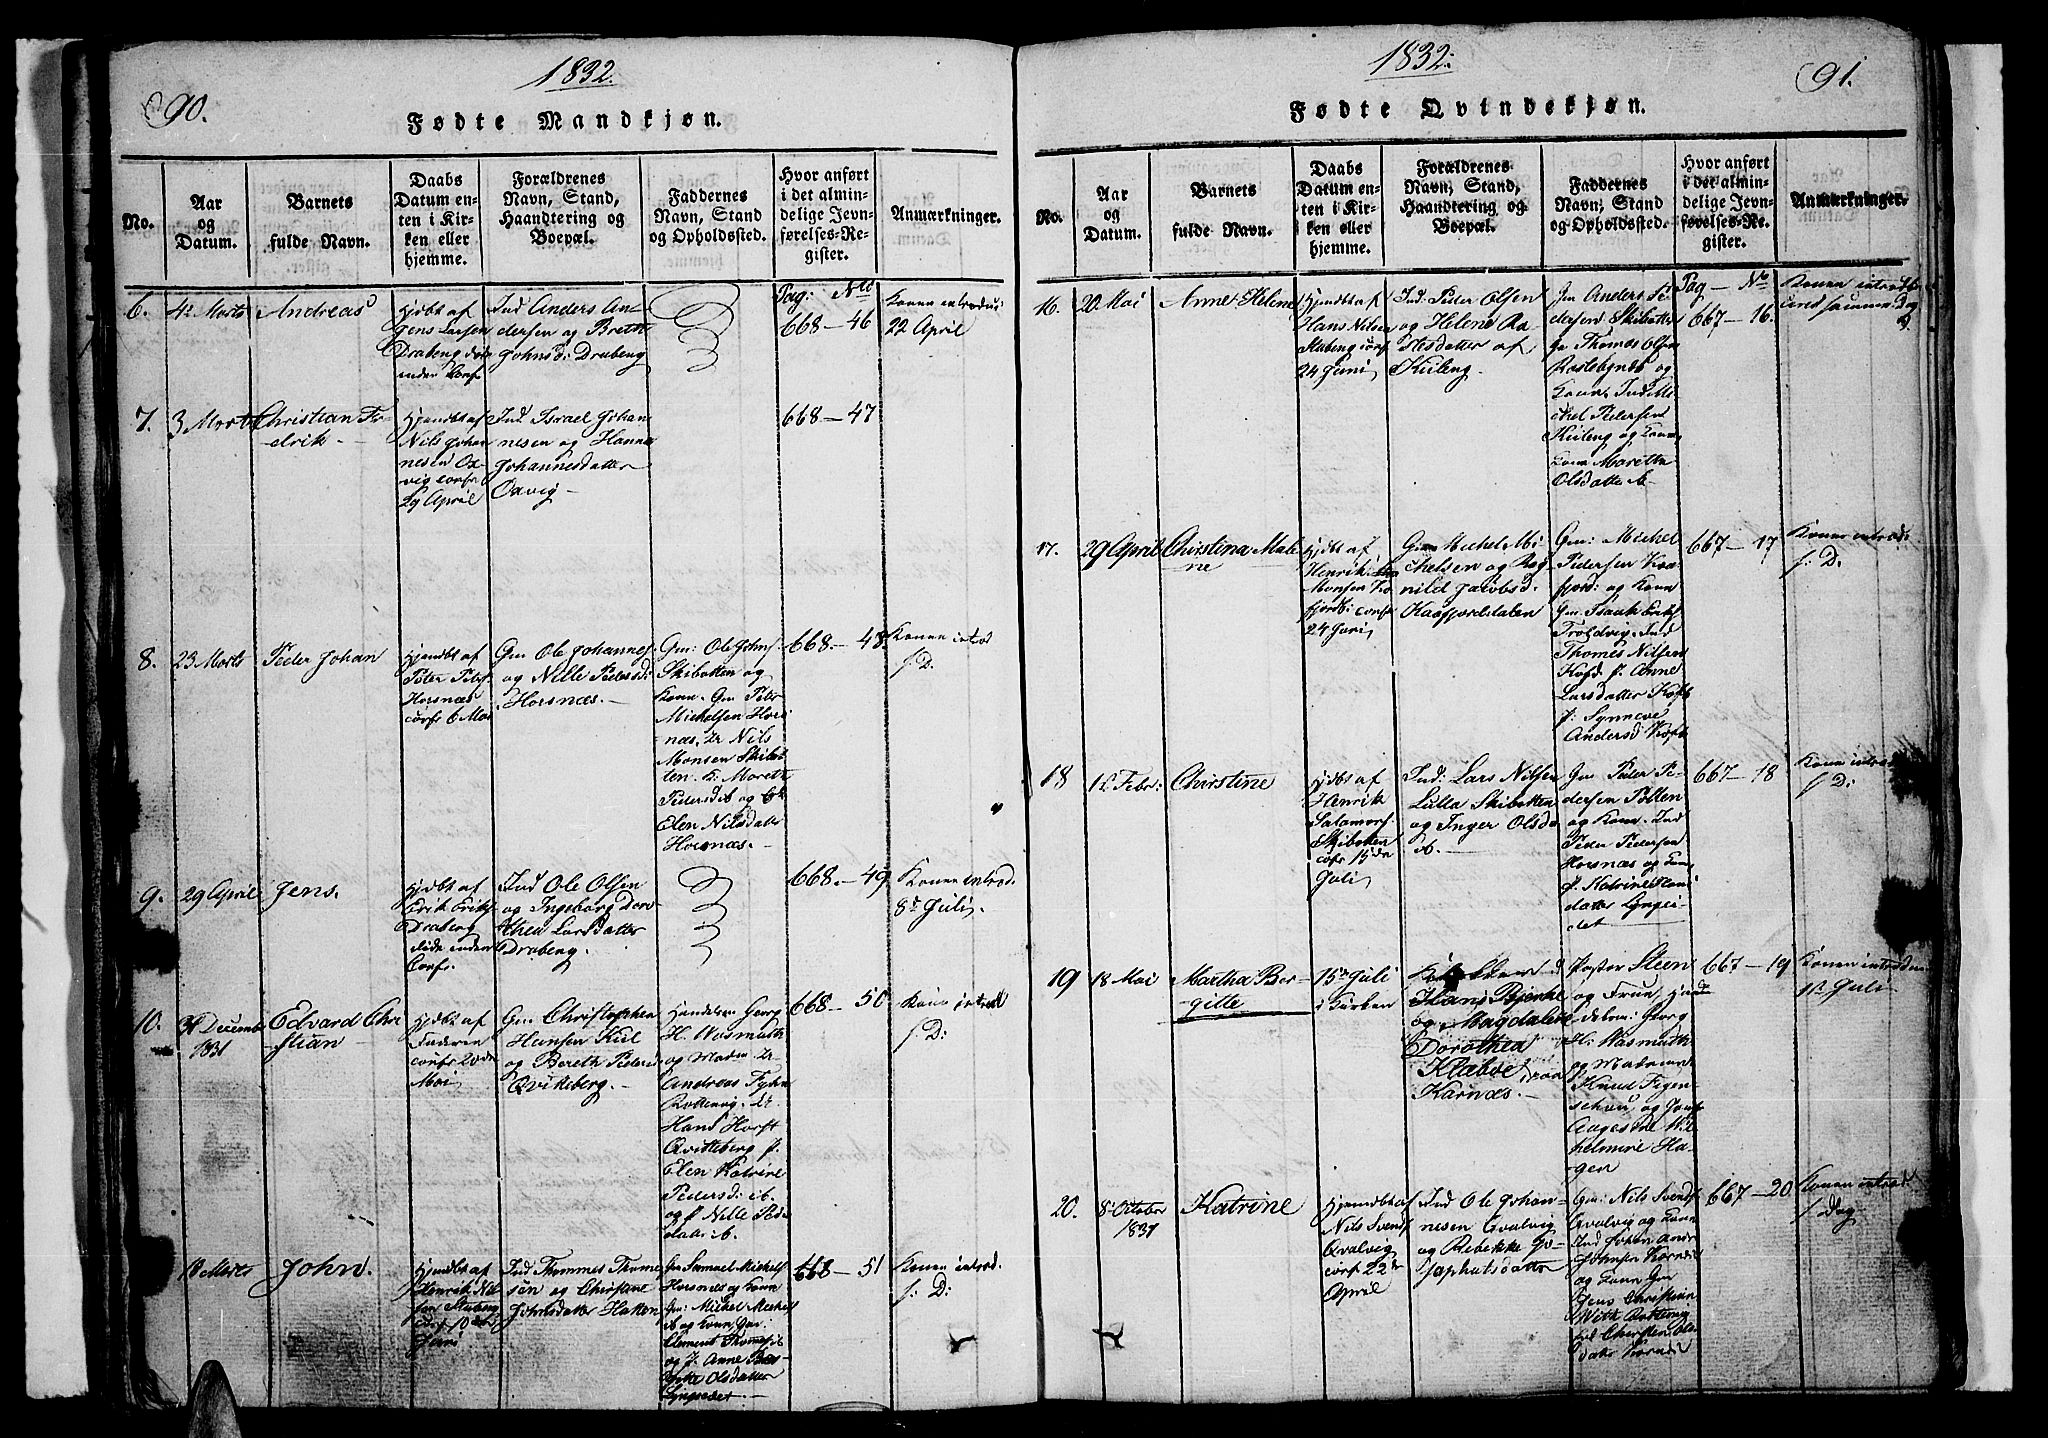 90.
1832.
Fødte Mandkjøn.
No.
Aar
og
Datum.
Barnets
fulde Navn.
Daabs
Datum en-
ten i Kir-
ken eller
hjemme.
Forældrenes
Navn, Stand,
Haandtering og
Boepæl.
Faddernes
Navn, Stand
og Opholdssted.
Hvor anført
i det almin-
delige Jevn-
førelses-Re-
gister.
Anmærkninger.
Pag: No
6.
Andreas
Ind Anders An-
dersen og Berith
Johnsd: Drabeng
668 - 46
Konen introdus:
22 April
7.
3 Marts
Christian Fre-
derik
Hjemdbt af
Nils Johan
nesen Ox-
vig confr
29 April
Ind Israel Johan
nesen og Hanna
Johannesdatter
Oxvig
668 - 47
8.
23 Marts
Peder Johan
Hjemdbt af
Peter Peders
Horsnæs
confr 6 Mai
Gm Ole Johannes
og Nille Pedersd:
Horsnæs.
Gm: Ole Johns
Skibotten og
Kone. Gm Peter
Michelsen Hors
næs, Nils
Monsen Skibot
ten. Mareth
Pedersd ib og
Elen Nilsdatter
Horsnæs.
668 - 48
Konen introd
s: D.
9.
29 April
Jens.
Hjdbt af
Erik Eriks
Draberg
døde inden
Confr.
Ind Ole Olsen
og Ingeborg Doro-
thea Larsdatter
Draberg.
668 - 49
Konen introd.
8de Juli.
10.
31 Decemb
1831
Edvard Chri
stian
Hjdbt af
Faderen
confr 20de
Mai
Gm Christopher
Hansen Kiil
og Bereth Pedersd
Qvikeberg.
Handelsm Georg
H. Wasmuth
og Madm
Andreas Fyhn
Rottenvig.
Hans Horst
Qvitteberg p.
Elen Katrine
Pedersd: ib.
og p Nille Peders
datter ib.
668 - 50
Kone introd
s: D:
18 Marts
John.
Hjemdbt af
Henrik Nil
sen
confr 10de
Juni
Ind Thommes Thomes
sen og Christine
Johnsdatter Hatten
Gm Samuel Michels
Horsnæs og Kone
Gm: Michel Michels
ib og Kone, Gm:
Clement Thomes ib
og J. Anne
Olsdatter
Lyngseidet
668 - 51
Konen introd.
s: D:
1832.
91.
Fødte Qvindekjøn.
No.
Aar
og
Datum.
Barnets
fulde Navn.
Daabs
Datum en-
ten i Kir-
ken eller
hjemme.
Forældrenes
Navn, Stand,
Haandtering og
Boepæl.
Faddernes
Navn, Stand
og Opholdssted.
Hvor anført
i det almin-
delige Jevn-
førelses-Re-
gister.
Anmærkninger.
Pag - No
16.
20 Mai
Anne Helene
Hjemdbt af
Hans Nilsen
confr
24 Juni
Ind: Peder Olsen
og Helene Ra
sdatter af
Kiileng.
Gm Anders Pe-
dersen Skibotten
Gm Thomas Olsen
og
Kone, Ind Mi-
chel Pedersen
Kiileng og Kone
Maretha
Olsdatter
667 - 16.
Konen introds
samme Dag
17.
29 April
Christina Male-
ne
Hjdbt af
Henrik
Monsen
fjord: confr
24 Juni
Gm Michel Mi
chelsen og Rag
nild Jacobsd:
Kaafjorddalen
Gm: Michel
Pedersen Kaa
fjord: og Kone
Gm: Isaak Eriks
Troldvig. Ind
Thomes Nilsen
Kafd p. Anne
Larsdatter Kafd
p: Synneve
Andersd Kafd
667 - 17
Konen introd:
s: D.
18
1ste Febr:
Christine
Hjdbt af
Henrik
Salamons
Skibotten
confr 15de
Juli
Ind: Lars Nilsen
Lulla Skibotten
og Inger Olsd
ib.
Gm Peder Pe-
dersen Pollen
og Kone. Ind
Peder Pedersen
Horsnæs og Kone
p. Katrine Hans
datter Lyngsei
det
667 - 18
Konen introd
s: D:
19
18 Mai
Martha Ber-
gitte
15de Juli
i Kirken
Hans Bjerke
og Magdalene
Dorothea
Klæboe paa
Karnæs.
Pastor Steen
og Frue, Hand
delsm: Georg
H: Wasmuth
og Madame
Knud Figen-
schau og Jomf
Aagestine Wil
helmine Ha-
gen
667 - 19
Konen introdu
1ste Juli
20.
8 October
1831
Katrine
Hjemdbt af
Nils Svends
Qvalvig
confr 22de
April
Ind Ole Johan-
nesen Qvalvig
og Rebekke
Japhetsdatter
Gm: Nils Svends
Qvalvig og Kone
Ind Johan Andr
Johnsen Karnæs
og Kone Gm
Jens Christian
With
Christen Ols
datter Karnæs
667 - 20
Konen introd
s Dag